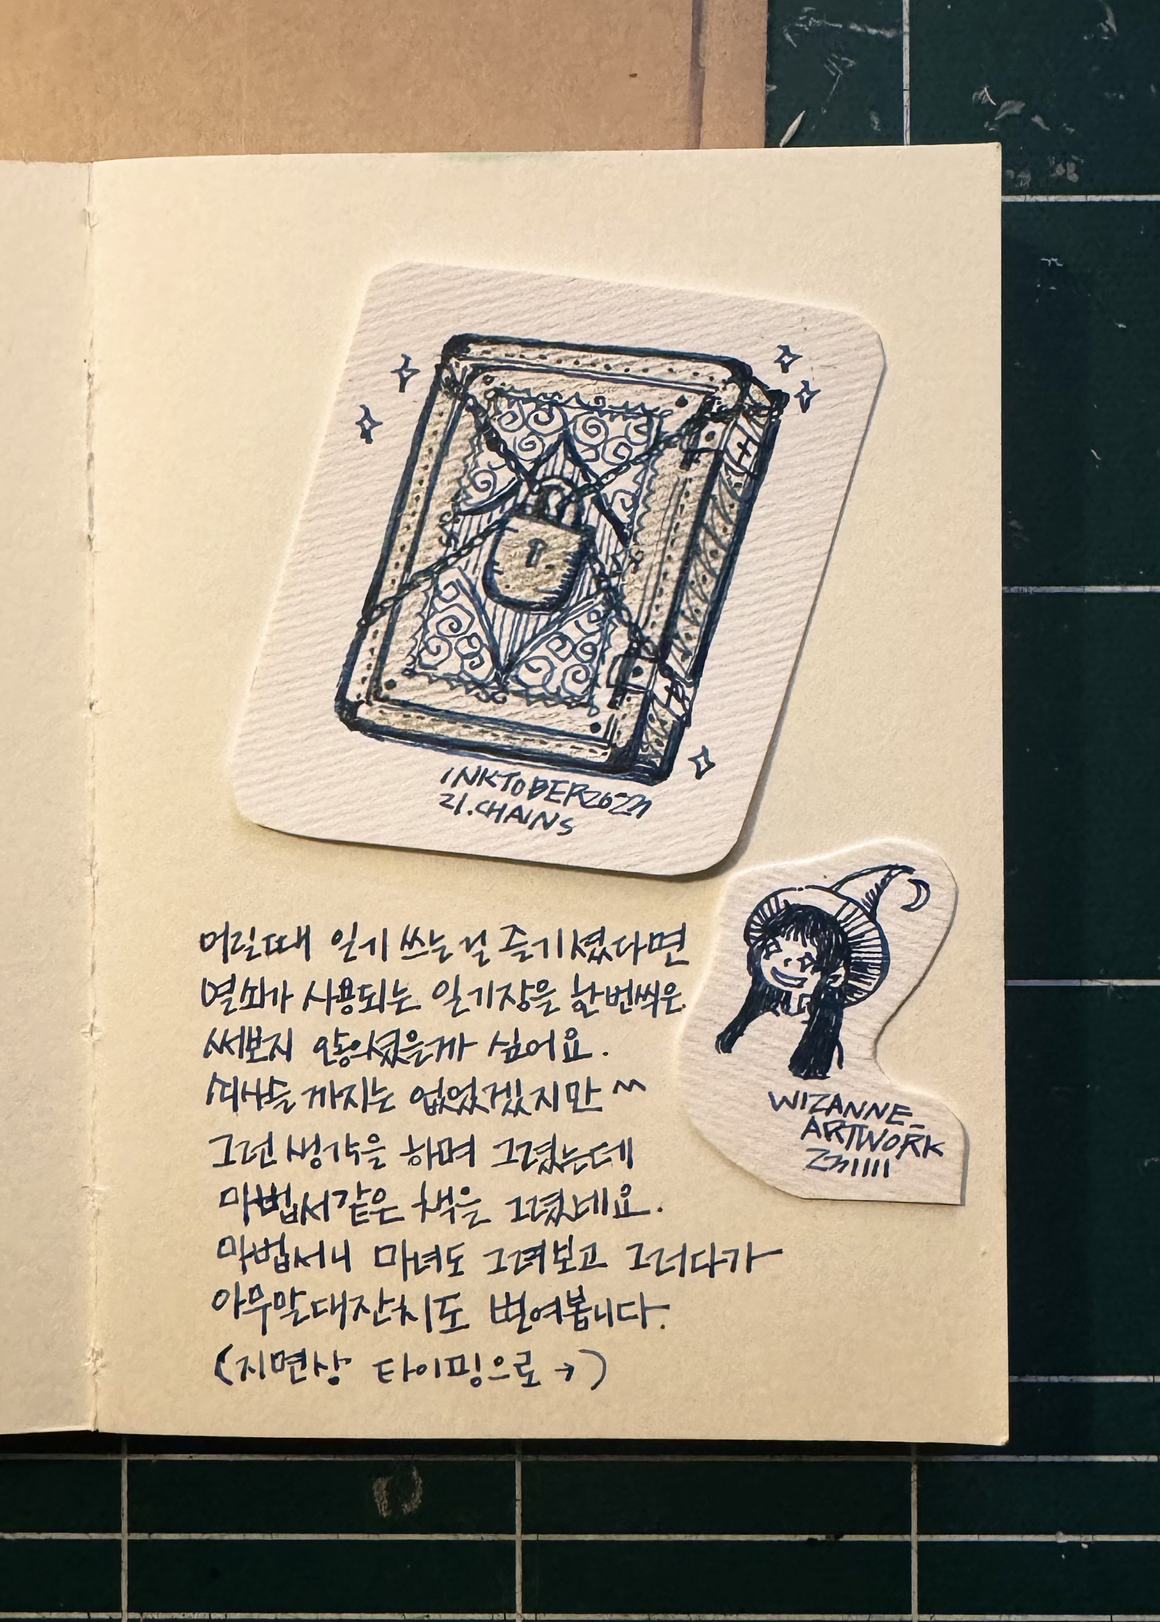 INKTOBER2023
21.CHAINS
어릴때 일기 쓰는걸 즐기셨다면
열쇠가 사용되는 일기장을 한번씩은
써보지 않으셨을까 싶어요.
쇠사슬 까지는 없었겠지만 ^^
그런 생각을 하며 그렸는데
마법서같은 책을 그렸네요.
마법서니 마녀도 그려보고 그러다가
아무말대잔치도 벌여봅니다.
(지면상 타이핑으로→)
WIZANNE_
ARTWORK